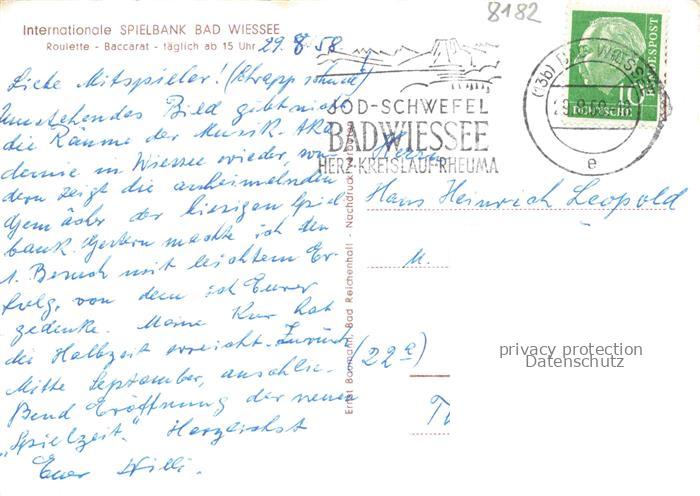 8182
Internationale SPIELBANK BAD WIESSEE
Roulette - Baccarat - täglich ab 15 Uhr
29.8.58
Liebe Mitspieler!
Umstehendes Bild gibt nicht
die Räume der Musik-Aka
demie in Wiessee wieder, son
dern zeigt die anheimelnden
Gemächer der hiesigen Spiel
bank. Gestern machte ich den
1. Besuch mit leichtem Er-
folg, von dem ich Eurer
gedenke. Meine Kur hat
die Halbzeit erreicht. Zurück
Mitte September, anschlie-
ßend Eröffnung der neuen
"Spielzeit". Herzlichst
Euer Willi.
Ernst Baumann, Bad Reichenhall - Nachdruck
JOD-SCHWEFEL
BAD WIESSEE
HERZ-KREISLAUF-RHEUMA
(13b) BAD WIESSEE
29.8.58
e
DEUTSCHE BUNDESPOST
10
Herrn
Hans Heinrich Leopold
u.
(22a)
privacy protection
Datenschutz